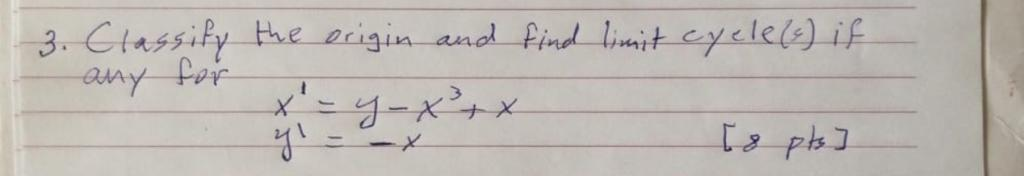 3. Classify the origin and find limit cycle(s) if
any for
x' = y - x³ + x
y' = -x [8 pts]